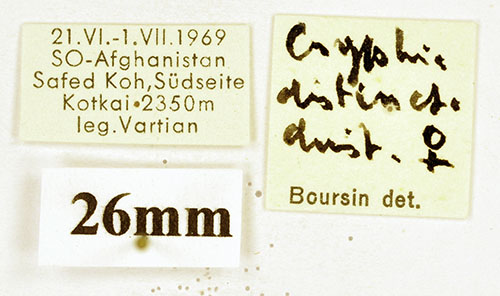 21.VI.-1.VII.1969
SO-Afghanistan
Safed Koh,Südseite
Kotkai•2350m
leg.Vartian
26mm
Cryphi.
distinct.
christ. ♀
Boursin det.